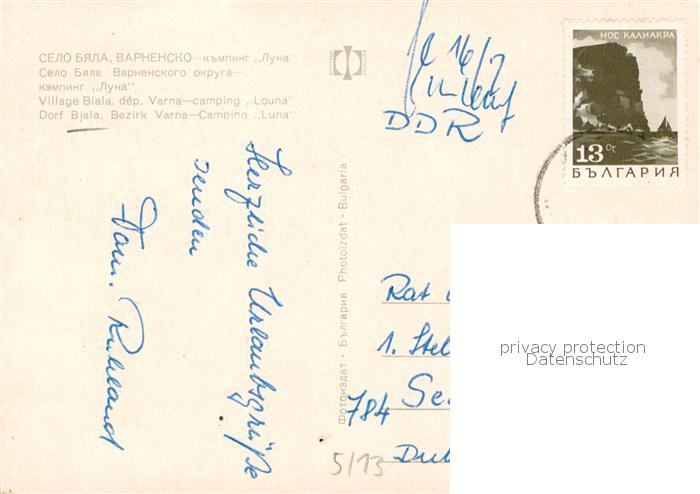 СЕЛО БЯЛА, ВАРНЕНСКО — къмпинг „Луна"
Село Бяла Варненского округа—
кэмпинг „Луна"
Village Biala, dép. Varna—camping „Louna"
Dorf Bjala. Bezirk Varna—Camping „Luna"
16/7
DDR
НОС КАЛИАКРА
13 Ст.
БЪЛГАРИЯ
Herzliche Urlaubsgrüße
senden
Fam. Ruhland
Фотоиздат - България Photoizdat - Bulgaria
Rat
1. Stel
784 Se
Dub
privacy protection
Datenschutz
5/13